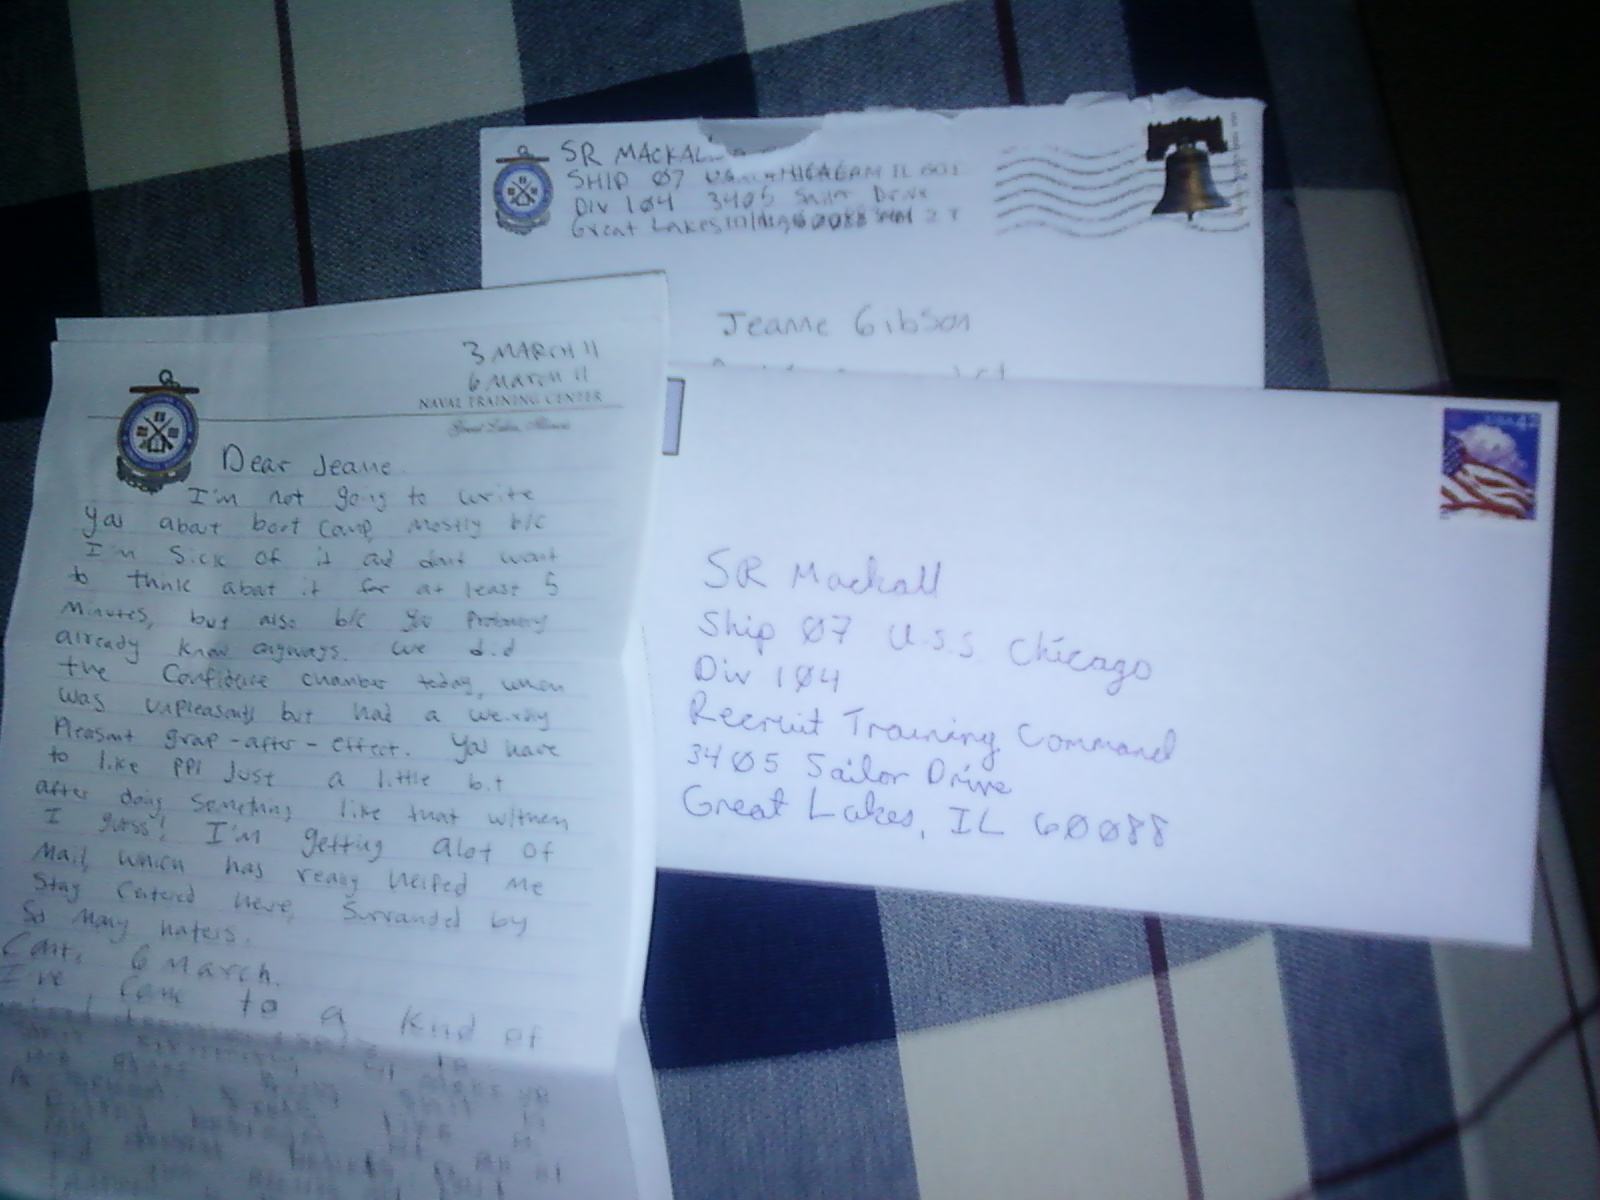 SR MACKALL
SHIP 07
Div 104 3405 Sailor Drive
Great Lakes
Jeanne Gibson
3 MARCH 11
6 MARCH 11
NAVAL TRAINING CENTER
Great Lakes, Illinois
Dear Jeanne
I'm not going to write
you about boot camp, mostly b/c
I'm sick of it and dont want
to think about it for at least 5
minutes, but also b/c you probably
already know anyways. We did
the confidence chamber today, when
was unpleasant, but had a weirdly
pleasant grap-after-effect. You have
to like PPl just a little bit
after doing something like that w/them
I guess! I'm getting alot of
mail, which has really helped me
stay centered here, surranded by
so many haters.
Cont, 6 March.
I've come to a kind of
USA 42
SR Mackall
Ship 07 U.S.S Chicago
Div 104
Recruit Training Command
3405 Sailor Drive
Great Lakes, IL 60088